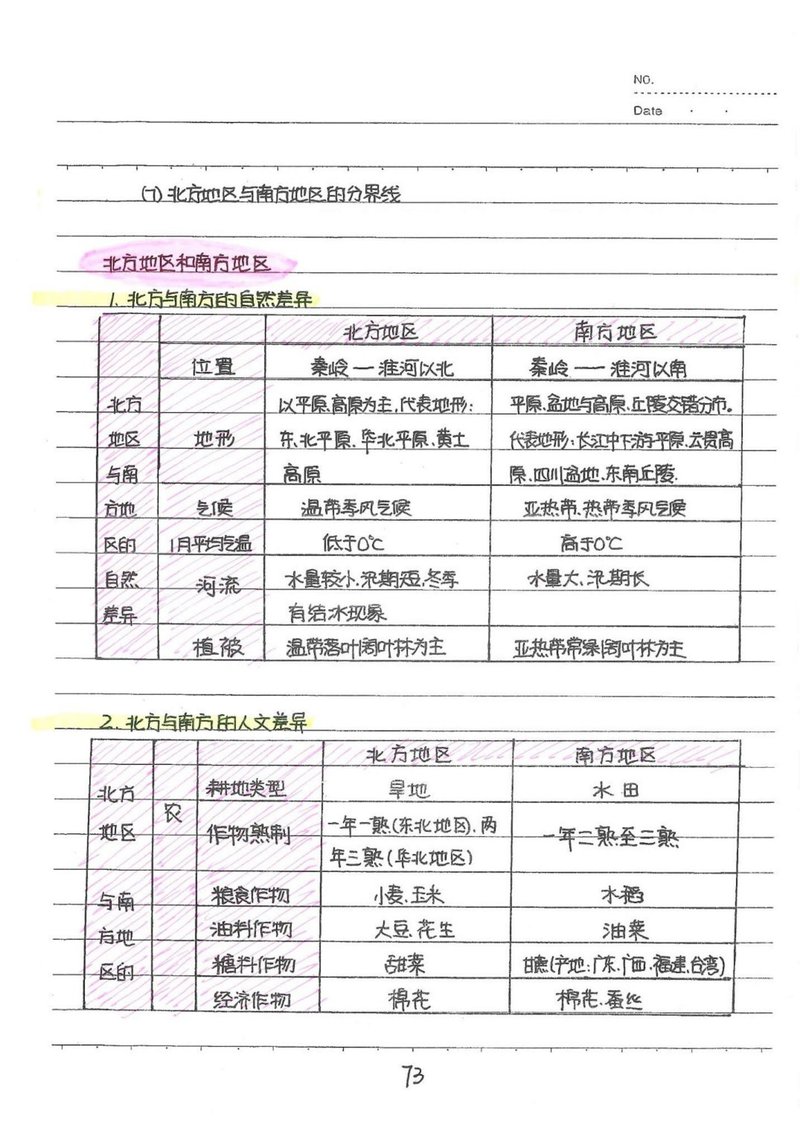 NO.
Date
(7) 北方地区与南方地区的分界线
北方地区和南方地区
1. 北方与南方的自然差异
北方地区 南方地区
位置 秦岭—淮河以北 秦岭—淮河以南
北方 以平原、高原为主,代表地形: 平原、盆地与高原、丘陵交错分布。
地区 地形 东北平原、华北平原、黄土 代表地形:长江中下游平原、云贵高
与南 高原 原、四川盆地、东南丘陵.
方地 气候 温带季风气候 亚热带、热带季风气候
区的 1月平均气温 低于0℃ 高于0℃
自然 河流 水量较小、汛期短、冬季 水量大、汛期长
差异 有结冰现象
植被 温带落叶阔叶林为主 亚热带常绿阔叶林为主
2. 北方与南方的人文差异
北方地区 南方地区
北方 耕地类型 旱地 水田
地区 农 作物熟制 一年一熟(东北地区)、两 一年二熟至三熟
年三熟(华北地区)
与南 粮食作物 小麦、玉米 水稻
方地 油料作物 大豆、花生 油菜
区的 糖料作物 甜菜 甘蔗(产地:广东、广西、福建、台湾)
经济作物 棉花 棉花、蚕丝
73